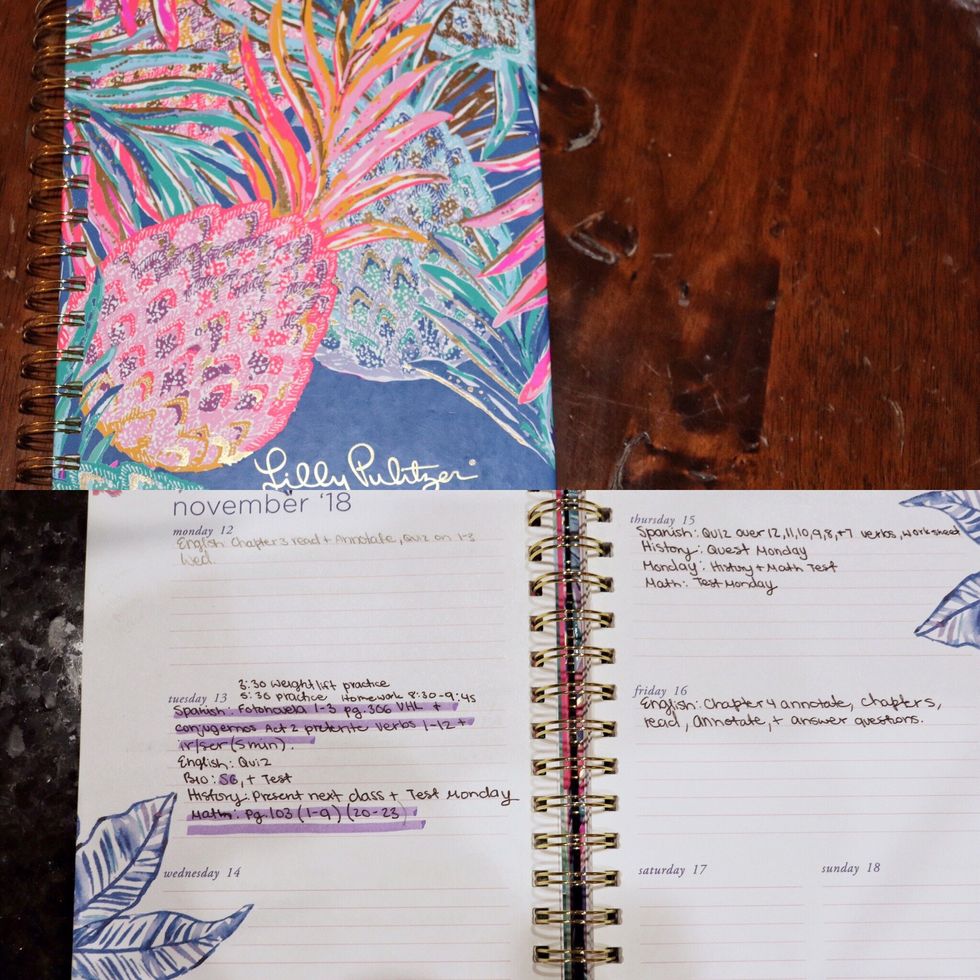 Lilly Pulitzer®
november '18
monday 12
English: Chapter 3 read + Annotate, Quiz on 1-3
Wed.
tuesday 13
3:30 weightlift practice
5:30 practice Homework 8:30-9:45
Spanish: Fotonovela 1-3 pg.306 VHL +
conjugemos Act 2 preterite verbs 1-12 +
ir/ser (5min).
English: Quiz
BIO: SG, + Test
History: Present next class + Test Monday
Math: Pg.103 (1-9) (20-23)
wednesday 14
thursday 15
Spanish: Quiz over 12,11,10,9,8,+7 verbs, worksheet
History: Quest Monday
Monday: History + Math Test
Math: Test Monday
friday 16
English: Chapter 4 annotate, chapter 5,
read, annotate, + answer questions.
saturday 17
sunday 18